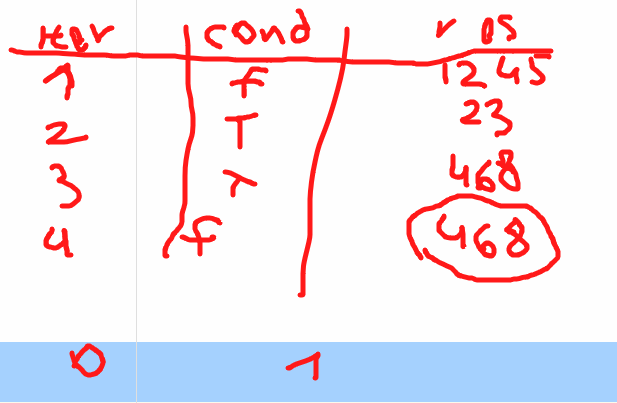 iter cond res
1 f 1245
2 T 23
3 T 468
4 f 468
0 1